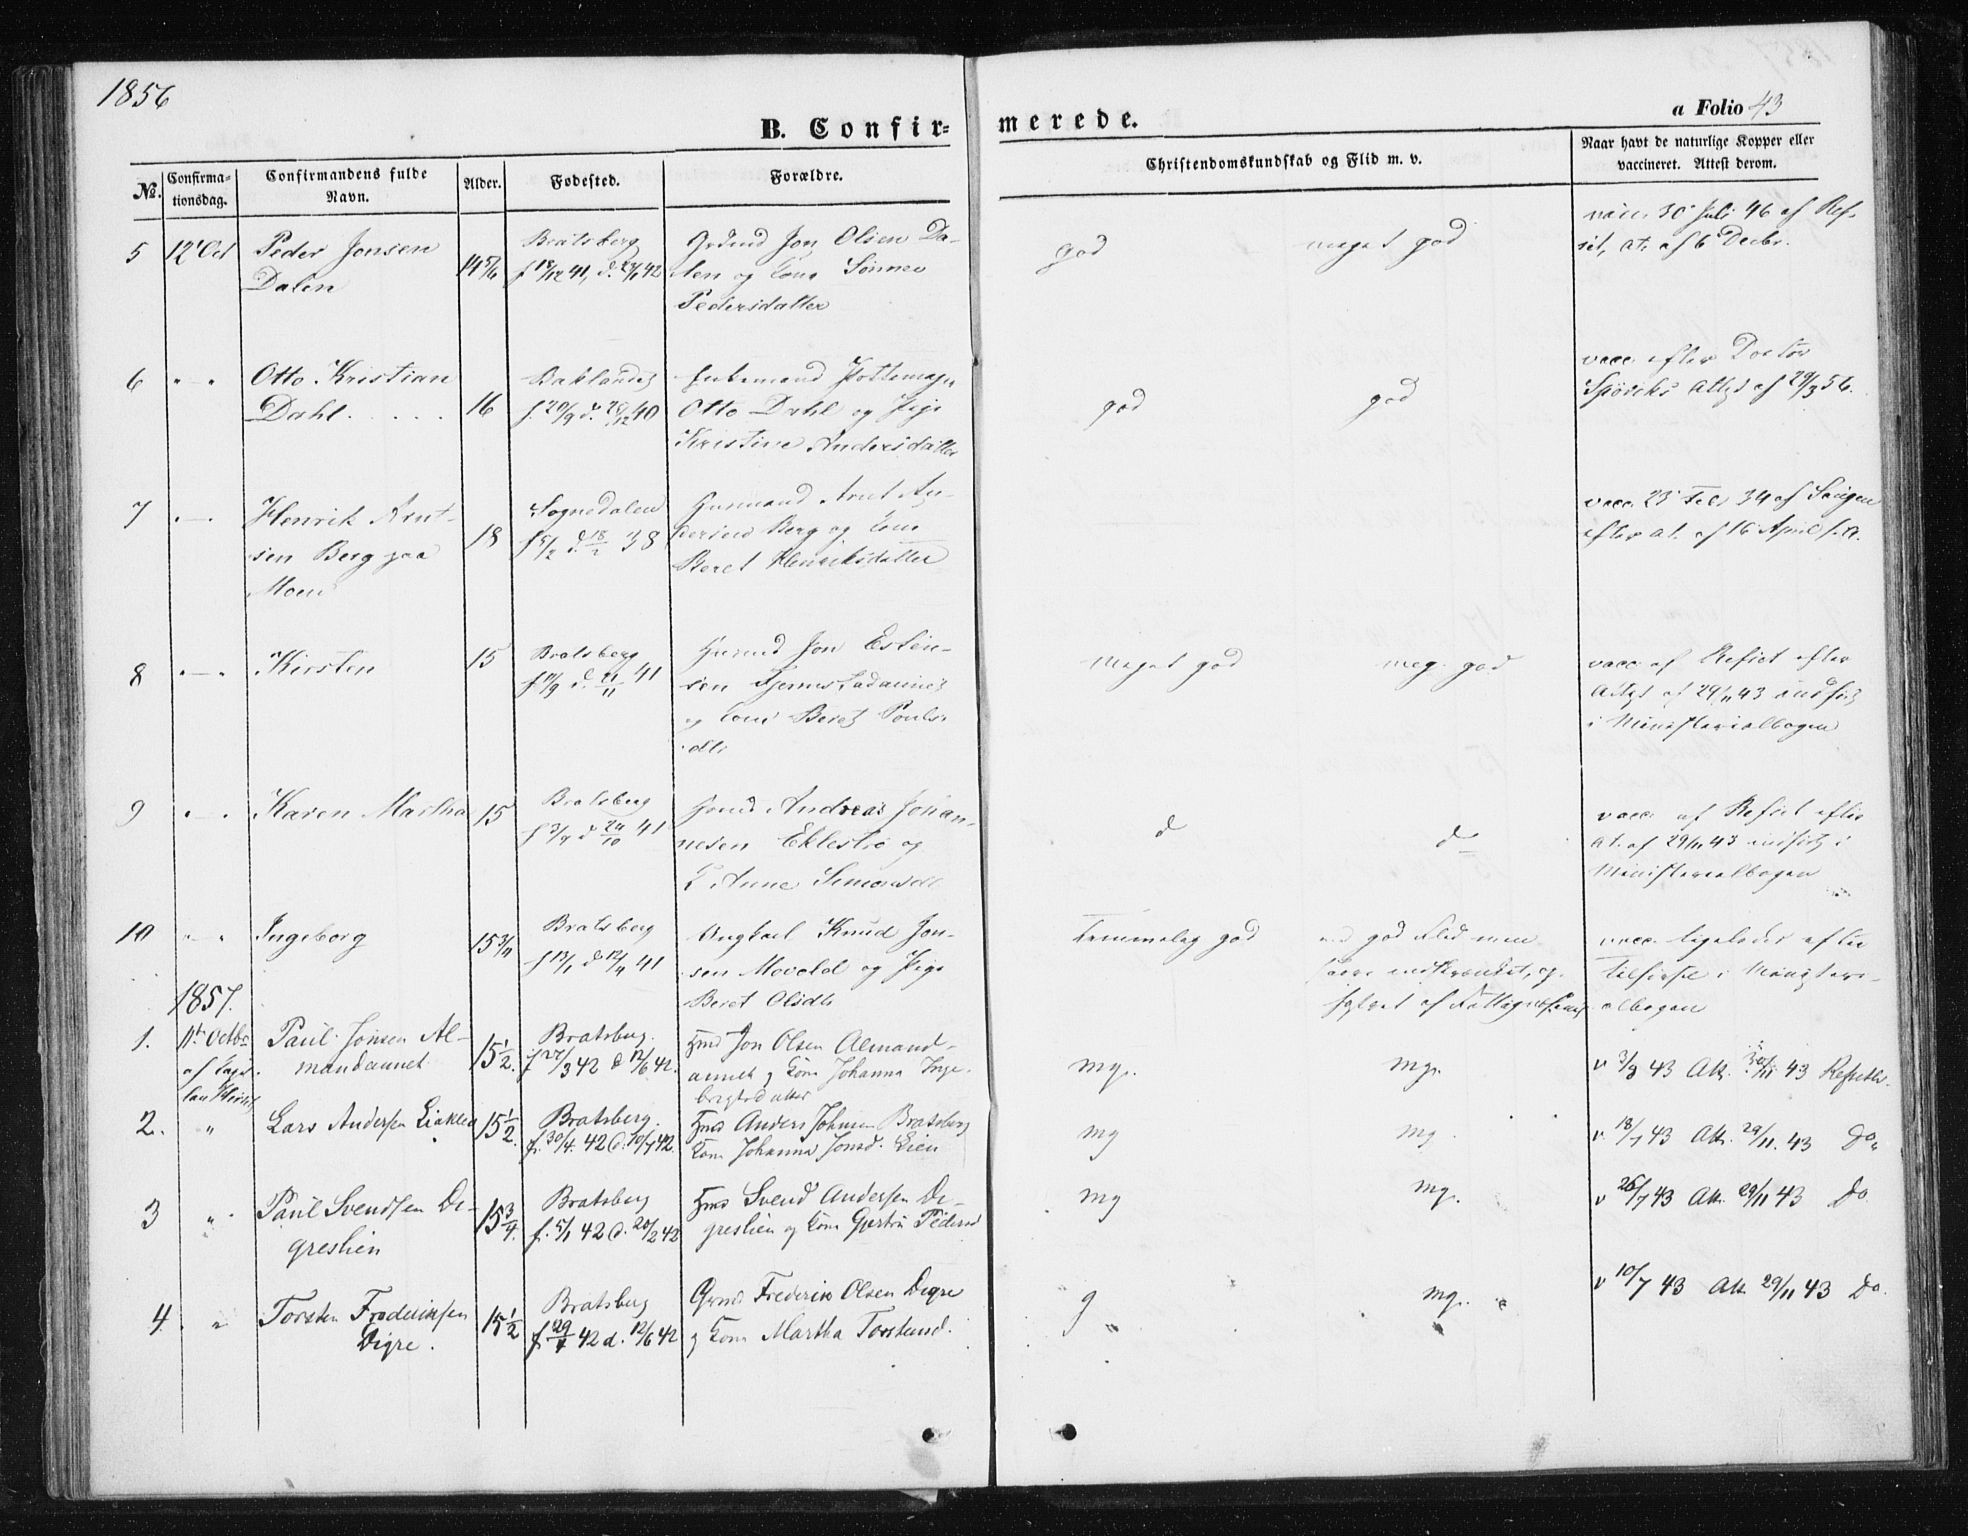 1856
a Folio 43
B. Confir- merede.
No.
Confirma-
tionsdag.
Confirmandens fulde
Navn.
Alder.
Fødested.
Forældre.
Christendomskundskab og Flid m. v.
Naar havt de naturlige Kopper eller
vaccineret. Attest derom.
5 12' Oct Peder Jonsen
Dalen
14 5/6
Bratsberg
f 18/12 41, d. 23/1 42
Jon Olsen Da-
len og Kone
Pedersdatter
god
meget god
vacc. 30' Juli 46 af Ref-
sit, at. af 6 Decbr.
6 " - " Otto Kristian
Dahl . . . . .
16
Baklandet
f. 20/9 d. 28/12 40
Otto Dahl og Pige
Kristine Andersdatter
god
god
vacc. efter Doctor
Attst af 29/3 56.
7 " - " Henrik Arnt-
sen Berg paa
Moen
18
Sognedalen
f 5/2 d. 18/2 38
Arnt An-
dersen Berg og Kone
Beret Henriksdatter
vacc 23' Feb 34 af
efter at. af 16 April
8 " - " Kirsten
15
Bratsberg
f 11/9 d. 21/11 41
Jon Esten-
sen
og Kone Beret Pouls-
dtr
meget god
meg. god
vacc af Refsit efter
Attst af 29/11 43 indført
i Ministerialbogen
9 " - " Karen Martha
15
Bratsberg
f 3/9 d 24/10 41
Andreas Johan-
nesen Eklestrø og
K Anne Simonsdt
d
d
vacc af Refsit efter
at. af 29/11 43 indført i
Ministerialbogen
10 " - " Ingeborg
15 3/4
Bratsberg
f 13/1 d 12/4 41
Ungkarl Knud Jon-
sen Movold og Pige
Beret Olsdtr
Temmelig god
god Flid men
indskrænket, og
af
vacc ligeledes efter
Tilførsel i Ministeri-
albogen
1857.
1. 11te Octbr.
af
Paul Jonsen Al-
mandannet
15 1/2.
Bratsberg.
f 27/3 42 d 12/6 42.
Hmd Jon Olsen Almand-
annet og Kone Johanna Inge-
brigtsdatter
mg.
mg.
v 3/8 43 Att. 30/11 43 Refseth.
2. " Lars Andersen Liaklev
15 1/2.
Bratsberg.
f. 30/4. 42 d. 10/7 42.
Hmd Anders Johnsen Bratsberg
Kone Johanna Jonsd. Lien
mg
mg.
v. 18/7 43 Att. 29/11. 43 Do.
3 " Paul Svendsen Di-
greslien
15 3/4.
Bratsberg
f. 5/1 42 d. 20/2 42
Hmd Svend Andersen Di-
greslien og Kone Gjertru Pedersd
mg
mg.
v 26/7 43 Att. 29/11 43 Do
4. " Torsten Frederiksen
Digre.
15 1/2
Bratsberg
f. 29/4 42 d. 12/6 42
Grmd Frederik Olsen Digre
og Kone Martha Torstensd.
g
mg.
v 10/7 43 Att 29/11 43 Do.